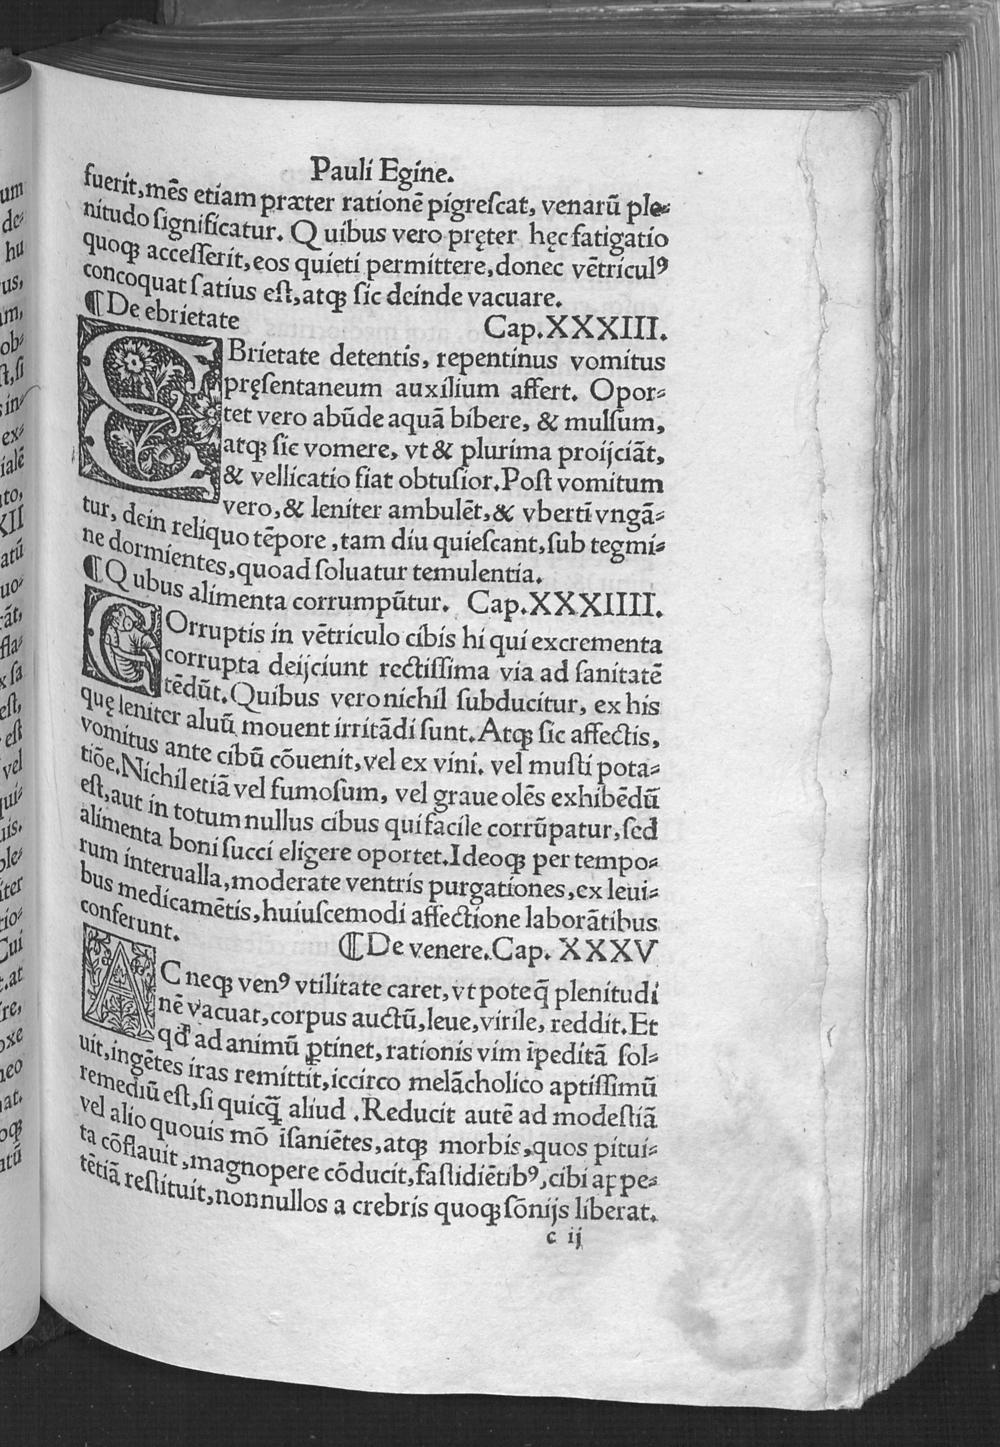 Pauli Egine.
fuerit, mẽs etiam præter rationẽ pigreſcat, venarũ ple⸗
nitudo ſignificatur. Quibus vero pręter hęc fatigatio
quoqꝫ acceſſerit, eos quieti permittere, donec vẽtriculꝰ
concoquat ſatius eſt, atqꝫ ſic deinde vacuare.
¶De ebrietate Cap.XXXIII.
EBrietate detentis, repentinus vomitus
pręſentaneum auxilium affert. Opor⸗
tet vero abũde aquã bibere, & mulſum,
atqꝫ ſic vomere, vt & plurima proijciãt,
& vellicatio fiat obtuſior. Poſt vomitum
vero, & leniter ambulẽt, & vberti vngã⸗
tur, dein reliquo tẽpore, tam diu quieſcant, ſub tegmi⸗
ne dormientes, quoad ſoluatur temulentia.
¶Qubus alimenta corrumpũtur. Cap.XXXIIII.
COrruptis in vẽtriculo cibis hi qui excrementa
corrupta deijciunt rectiſſima via ad ſanitatẽ
tẽdũt. Quibus vero nichil ſubducitur, ex his
quę leniter aluũ mouent irritãdi ſunt. Atqꝫ ſic affectis,
vomitus ante cibũ cõuenit, vel ex vini. vel muſti pota⸗
tiõe. Nichil etiã vel fumoſum, vel graue olẽs exhibẽdũ
eſt, aut in totum nullus cibus qui facile corrũpatur, ſed
alimenta boni ſucci eligere oportet. Ideoqꝫ per tempo⸗
rum interualla, moderate ventris purgationes, ex leui⸗
bus medicamẽtis, huiuſcemodi affectione laborãtibus
conferunt.
¶De venere. Cap. XXXV
AC neqꝫ venꝰ vtilitate caret, vt pote q̃ plenitudi
nẽ vacuat, corpus auctũ, leue, virile, reddit. Et
qd̓ ad animũ ꝑtinet, rationis vim ĩpeditã ſol⸗
uit, ingẽtes iras remittit, iccirco melãcholico aptiſſimũ
remediũ eſt, ſi quicq̃ aliud. Reducit autẽ ad modeſtiã
vel alio quouis mõ iſaniẽtes, atqꝫ morbis, quos pitui⸗
ta cõflauit, magnopere cõducit, faſtidiẽtibꝰ, cibi appe⸗
tẽtiã reſtituit, nonnullos a crebris quoqꝫ ſõnijs liberat.
c ij